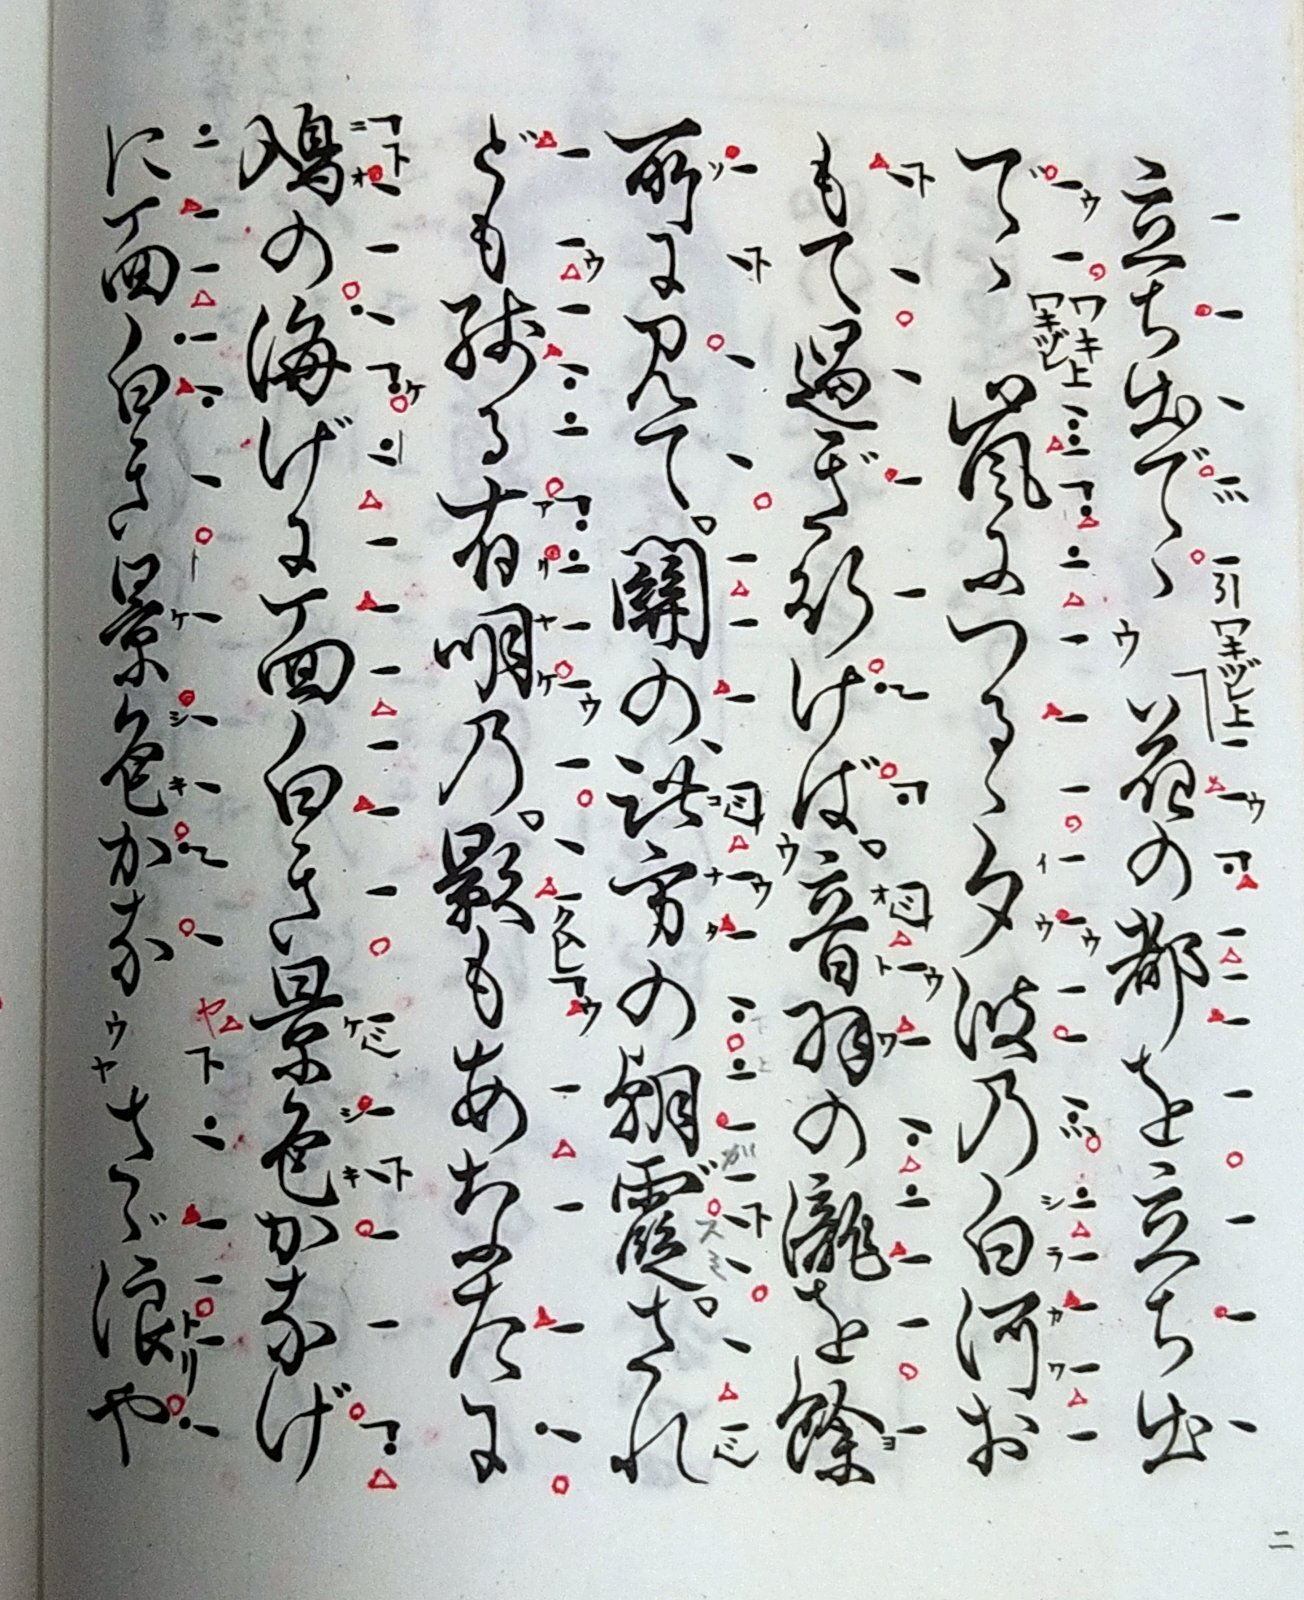 立ち出でゝ 引 ワキヅレ上 花の都を立ち出
でゝ ワキ上 ワキヅレ 嵐につるゝ夕波乃白河お
もて過ぎ行けば。音羽の瀧を餘
所に見て。關の、此方の朝霞。され
ども殘る有明乃。影もあなたに
鳰の海げに面白き景色かなげ
に面白き景色かな さゞ浪や
二